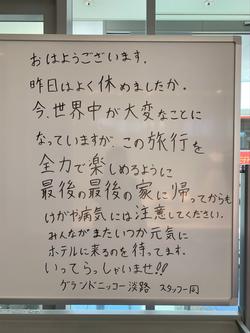 おはようございます.
昨日はよく休めましたか.
今、世界中が大変なことに
なっていますが、この旅行を
全力で楽しめるように
最後の最後の家に帰ってからも
けがや病気には注意してください.
みんながまたいつか元気に
ホテルに来るのを待ってます.
いってらっしゃいませ!!
グランドニッコー淡路 スタッフ一同